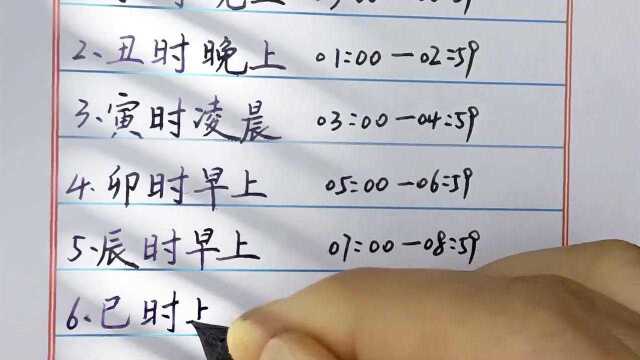 2、丑时晚上 01:00—02:59
3、寅时凌晨 03:00—04:59
4、卯时早上 05:00—06:59
5、辰时早上 07:00—08:59
6、巳时上